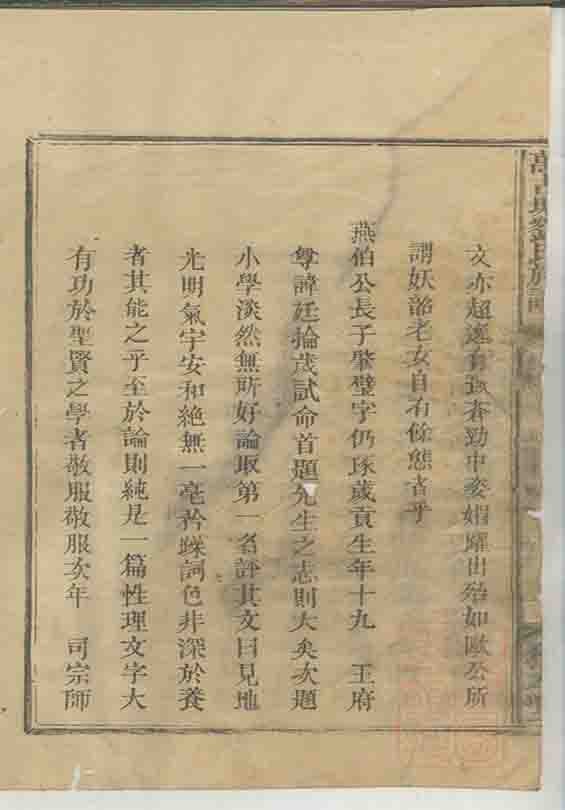 文亦超逸有致蒼勁中姿媚躍出殆如歐公所
謂妖韶老女自有餘態者乎
燕伯公長子肇璧字仍琢歲貢生年十九　王府
尊諱廷掄歲試命首題先生之志則大矣次題
小學淡然無所好論取第一名評其文曰見地
光明氣宇安和絕無一毫矜躁詞色非深於養
者其能之乎至於論則純是一篇性理文字大
有功於聖賢之學者敬服敬服次年　司宗師